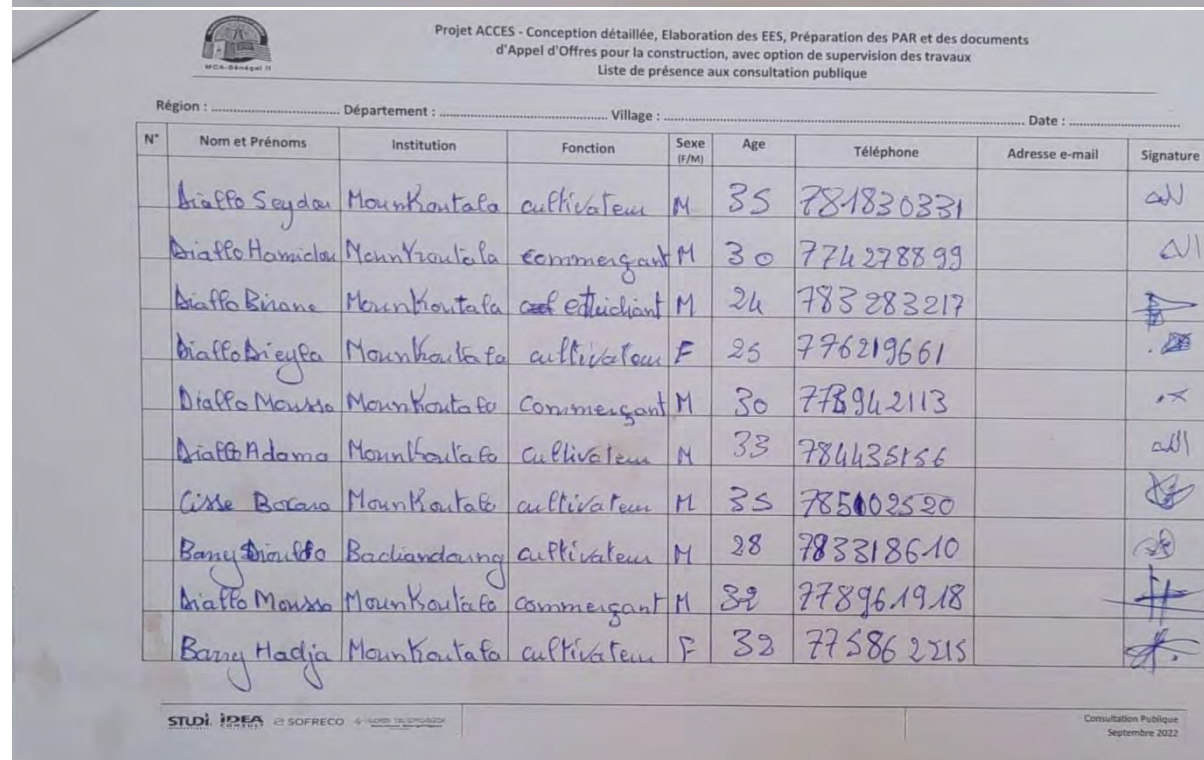 MCA-Sénégal II
Projet ACCES - Conception détaillée, Elaboration des EES, Préparation des PAR et des documents
d'Appel d'Offres pour la construction, avec option de supervision des travaux
Liste de présence aux consultation publique
Région : ................................ Département : .......................................... Village : .......................................................................................... Date : ............................
N° Nom et Prénoms Institution Fonction Sexe (F/M) Age Téléphone Adresse e-mail Signature
Diallo Seydou Mounkoutala cultivateur M 35 781830331
Diallo Hamidou Mounkoutala commerçant M 30 774278899
Diallo Birane Mounkoutala etudiant M 24 783283217
Diallo Dieyla Mounkoutala cultivateur F 25 776219661
Diallo Moussa Mounkoutala Commerçant M 30 778942113
Diallo Adama Mounkoutala cultivateur M 33 784435156
Cisse Bocara Mounkoutala cultivateur M 35 785102520
Barry Dioulfo Badiandoung cultivateur M 28 783318610
Diallo Moussa Mounkoutala commerçant M 32 778961918
Barry Hadja Mounkoutala cultivateur F 32 775862215
STUDI. IDEA CONSULT SOFRECO
Consultation Publique
Septembre 2022